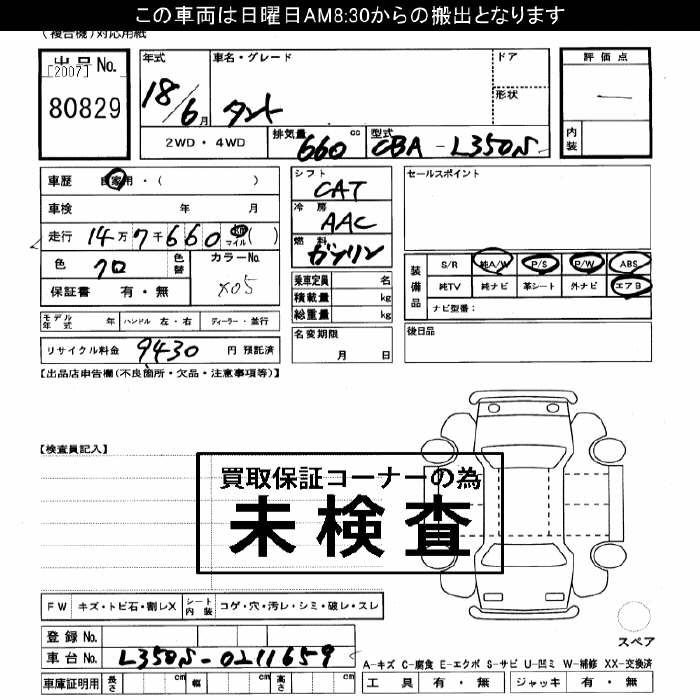 この車両は日曜日AM8:30からの搬出となります
(複合機)対応用紙
出品No.
[2007]
80829
年式 車名・グレード ドア
18/6月 タント
形状
2WD・4WD 排気量 660 cc 型式 CBA-L350S
評価点
―
内装
車歴 自家用・( )
車検 年 月
走行 14万7千660 km マイル( )
色 クロ 色替 カラーNo. X05
保証書 有・無
モデル年式 年 ハンドル 左・右 ディーラー・並行
リサイクル料金 9430 円 預託済
シフト CAT
冷房 AAC
燃料 ガソリン
乗車定員 名
積載量 kg
総重量 kg
名変期限
月 日
セールスポイント
装備品
S/R 純A/W P/S P/W ABS
純TV 純ナビ 革シート 外ナビ エアB
ナビ型番:
後日品
【出品店申告欄(不良箇所・欠品・注意事項等)】
【検査員記入】
買取保証コーナーの為
未検査
FW キズ・トビ石・割レX シート内装 コゲ・穴・汚レ・シミ・破レ・スレ
スペア
登録No.
車台No. L350S-0211659
A-キズ C-腐食 E-エクボ S-サビ U-凹ミ W-補修 XX-交換済
車庫証明用 長さ cm 幅 cm 高さ cm
工具 有・無 ジャッキ 有・無